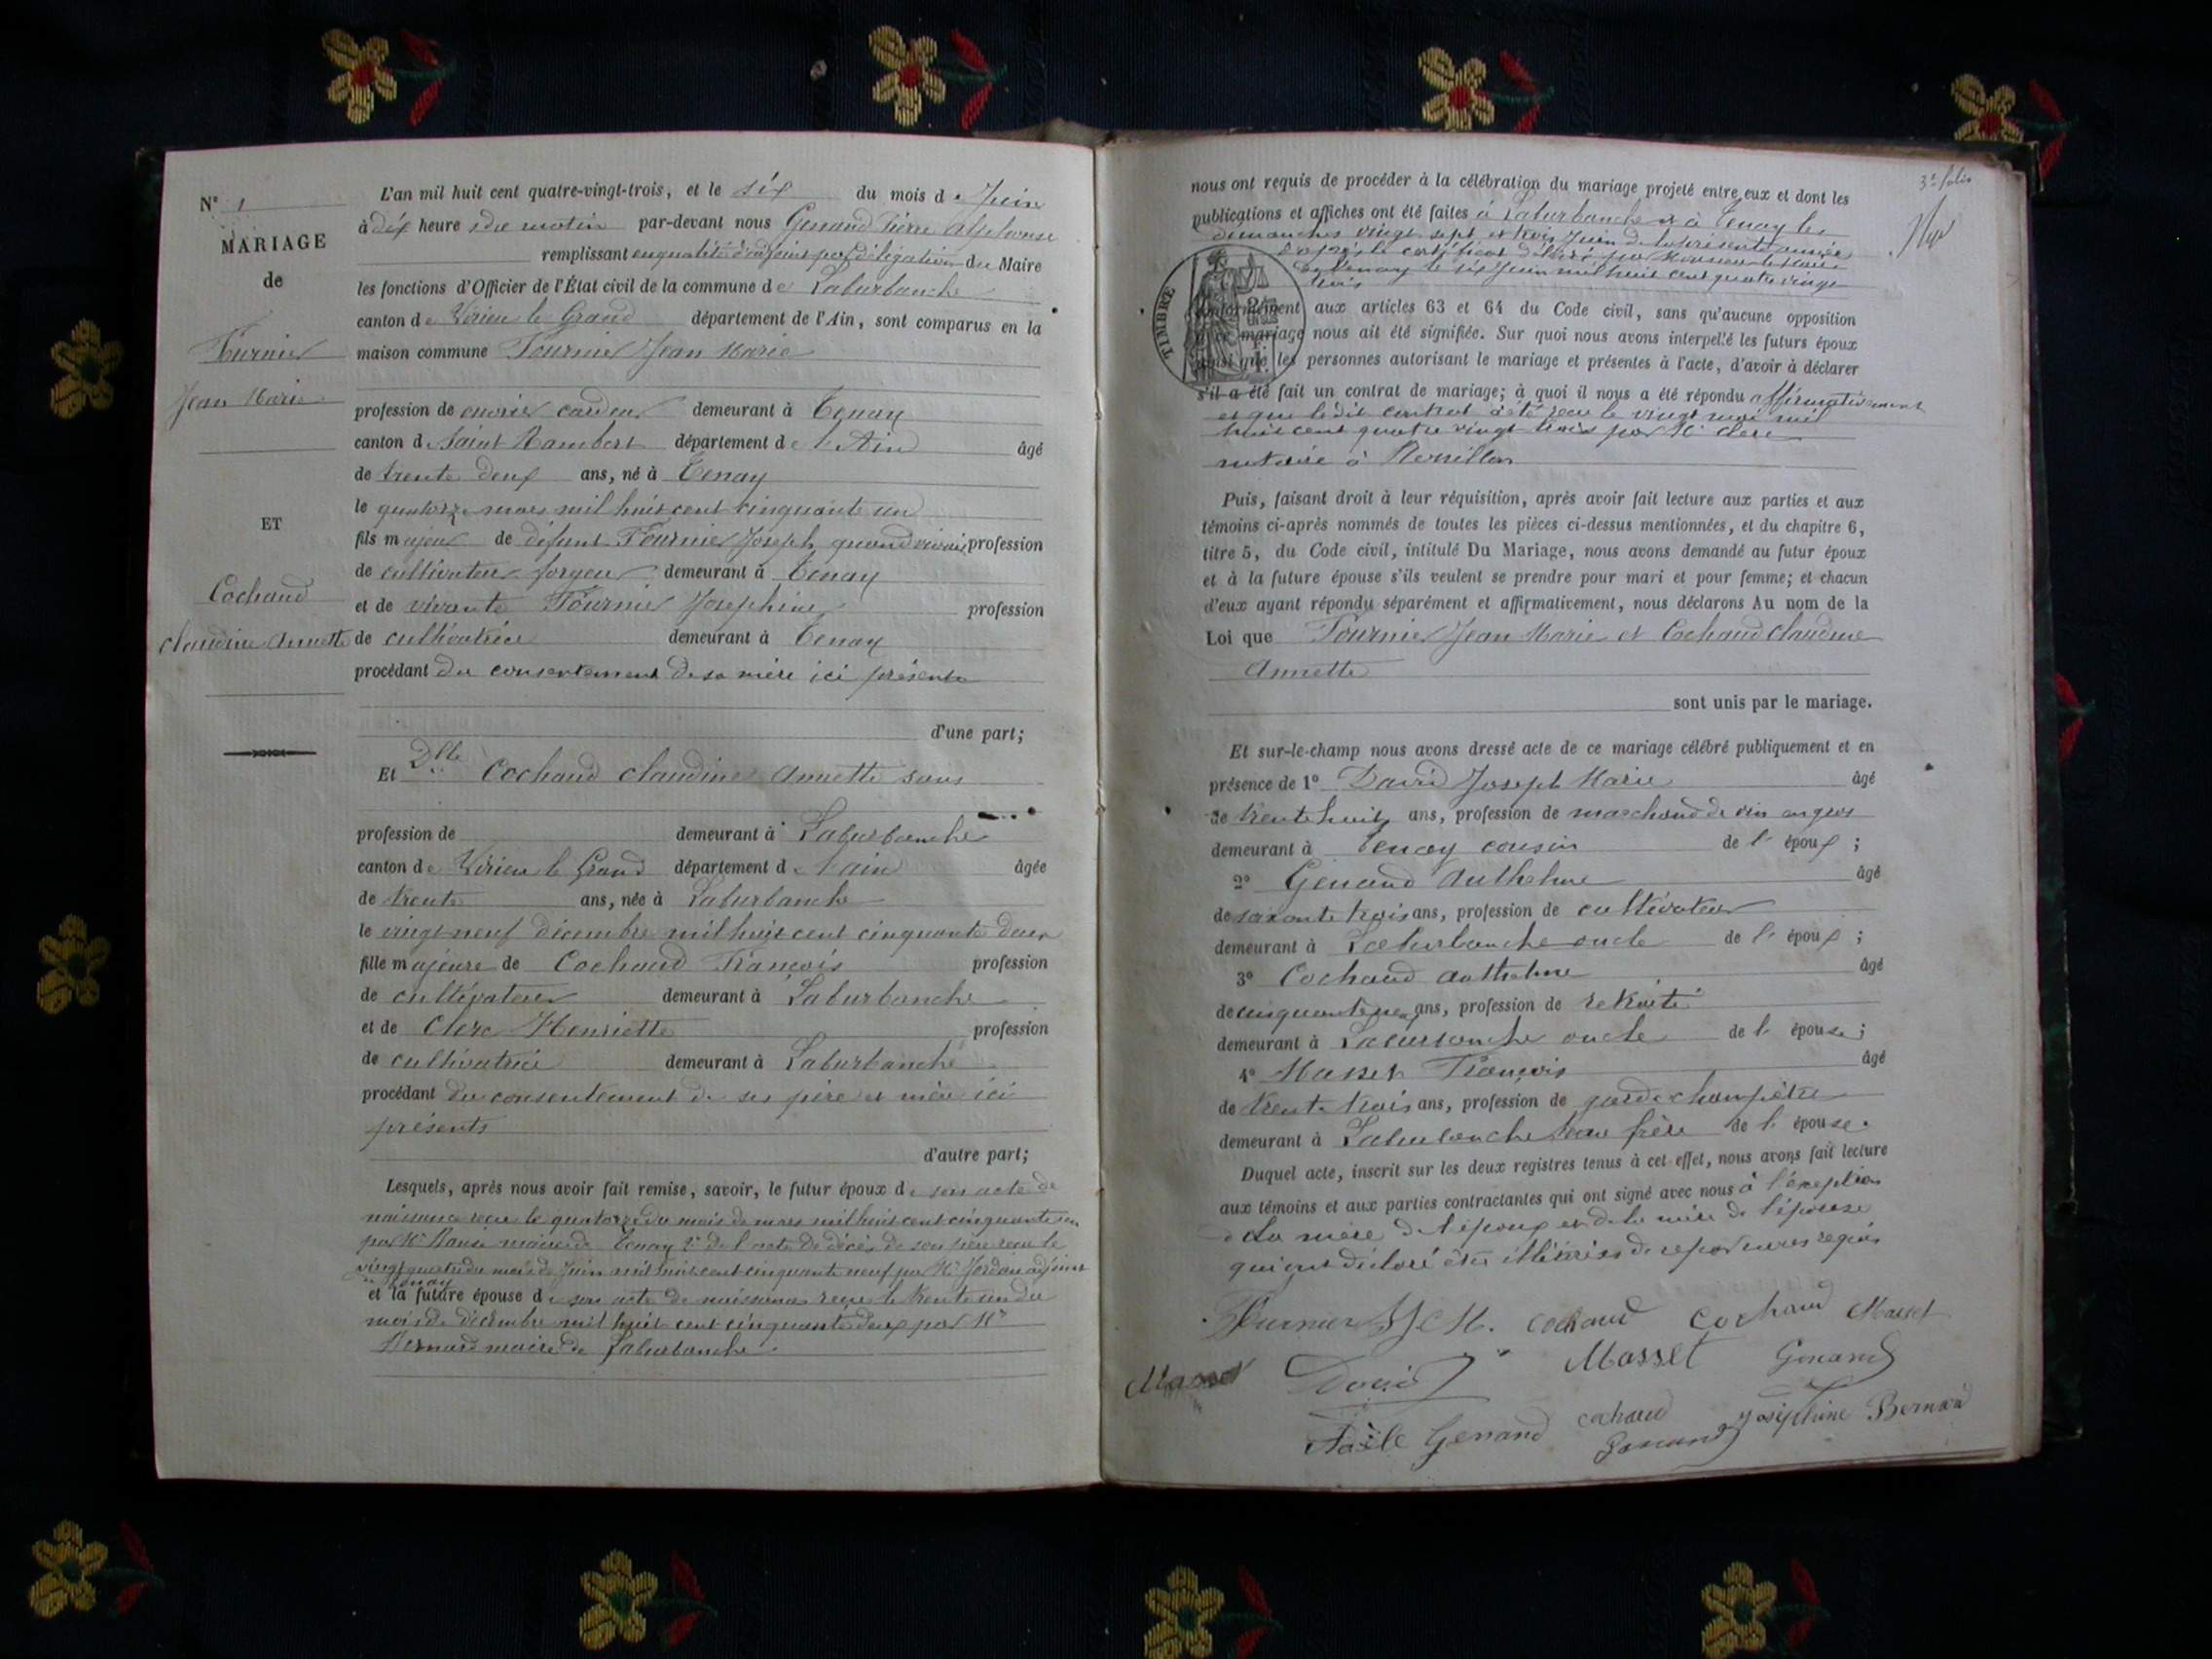 N° 1
MARIAGE
de
Fournier
Jean Marie
ET
Cochaud
Claudine Annette
L'an mil huit cent quatre-vingt-trois, et le six du mois de Juin
à dix heures du matin par-devant nous Genand Pierre Alphonse
remplissant en qualité d'adjoint par délégation du Maire
les fonctions d'Officier de l'État civil de la commune de Laburbanche
canton de Virieu le Grand département de l'Ain, sont comparus en la
maison commune Fournier Jean Marie
profession de ouvrier cardeur demeurant à Tenay
canton de Saint Rambert département de l'Ain âgé
de trente deux ans, né à Tenay
le quatorze mars mil huit cent cinquante un
fils majeur de défunt Fournier Joseph quand vivait profession
de cultivateur forgeur demeurant à Tenay
et de vivante Fournier Josephine profession
de cultivatrice demeurant à Tenay
procédant du consentement de sa mère ici présente
d'une part;
Et Dlle Cochaud Claudine Annette sans
profession de demeurant à Laburbanche
canton de Virieu le Grand département de l'ain âgée
de trente ans, née à Laburbanche
le vingt neuf décembre mil huit cent cinquante deux
fille majeure de Cochaud François profession
de cultivateur demeurant à Laburbanche
et de Clerc Henriette profession
de cultivatrice demeurant à Laburbanche
procédant du consentement de ses père et mère ici
présents
d'autre part;
Lesquels, après nous avoir fait remise, savoir, le futur époux de son acte de
naissance recu le quatorze du mois de mars mil huit cent cinquante un
par Mr maire de Tenay 2° de l'acte de décès de son père recu le
vingt quatre du mois de Juin mil huit cent cinquante neuf par Mr Jordan adjoint
de Tenay
et la future épouse de son acte de naissance reçu le trente un du
mois de décembre mil huit cent cinquante deux par Mr
Bernard maire de Laburbanche
3e folio
nous ont requis de procéder à la célébration du mariage projeté entre eux et dont les
publications et affiches ont été faites à Laburbanche et à Tenay les
dimanches vingt sept et trois Juin de la présente année
d'après le certificat délivré par Monsieur le Maire
de Tenay le six Juin mil huit cent quatre vingt
trois
TIMBRE
conformément aux articles 63 et 64 du Code civil, sans qu'aucune opposition
à ce mariage nous ait été signifiée. Sur quoi nous avons interpellé les futurs époux
ainsi que les personnes autorisant le mariage et présentes à l'acte, d'avoir à déclarer
s'il a été fait un contrat de mariage; à quoi il nous a été répondu affirmativement
et que ledit contrat a été recu le vingt mai mil
huit cent quatre vingt trois par Mr Clerc
notaire à Rossillon
Puis, faisant droit à leur réquisition, après avoir fait lecture aux parties et aux
témoins ci-après nommés de toutes les pièces ci-dessus mentionnées, et du chapitre 6,
titre 5, du Code civil, intitulé Du Mariage, nous avons demandé au futur époux
et à la future épouse s'ils veulent se prendre pour mari et pour femme; et chacun
d'eux ayant répondu séparément et affirmativement, nous déclarons Au nom de la
Loi que Fournier Jean Marie et Cochaud Claudine
Annette
sont unis par le mariage.
Et sur-le-champ nous avons dressé acte de ce mariage célébré publiquement et en
présence de 1° David Joseph Marie âgé
de trente huit ans, profession de marchand de vin en gros
demeurant à Tenay cousin de l'époux;
2° Genand Anthelme âgé
de soixante trois ans, profession de cultivateur
demeurant à Laburbanche oncle de l'époux;
3° Cochaud Anthelme âgé
de cinquante neuf ans, profession de retraité
demeurant à Laburbanche oncle de l'épouse;
4° Masset François âgé
de trente trois ans, profession de garde champêtre
demeurant à Laburbanche beau frère de l'épouse.
Duquel acte, inscrit sur les deux registres tenus à cet effet, nous avons fait lecture
aux témoins et aux parties contractantes qui ont signé avec nous à l'exception
de la mère de l'époux et de la mère de l'épouse
qui ont déclaré être illétrées de ce par nous requis
Fournier J M. Cochaud Cochaud Masset
Masset David Masset Genand
Adèle Genand Cochaud Genand Joséphine Bernard